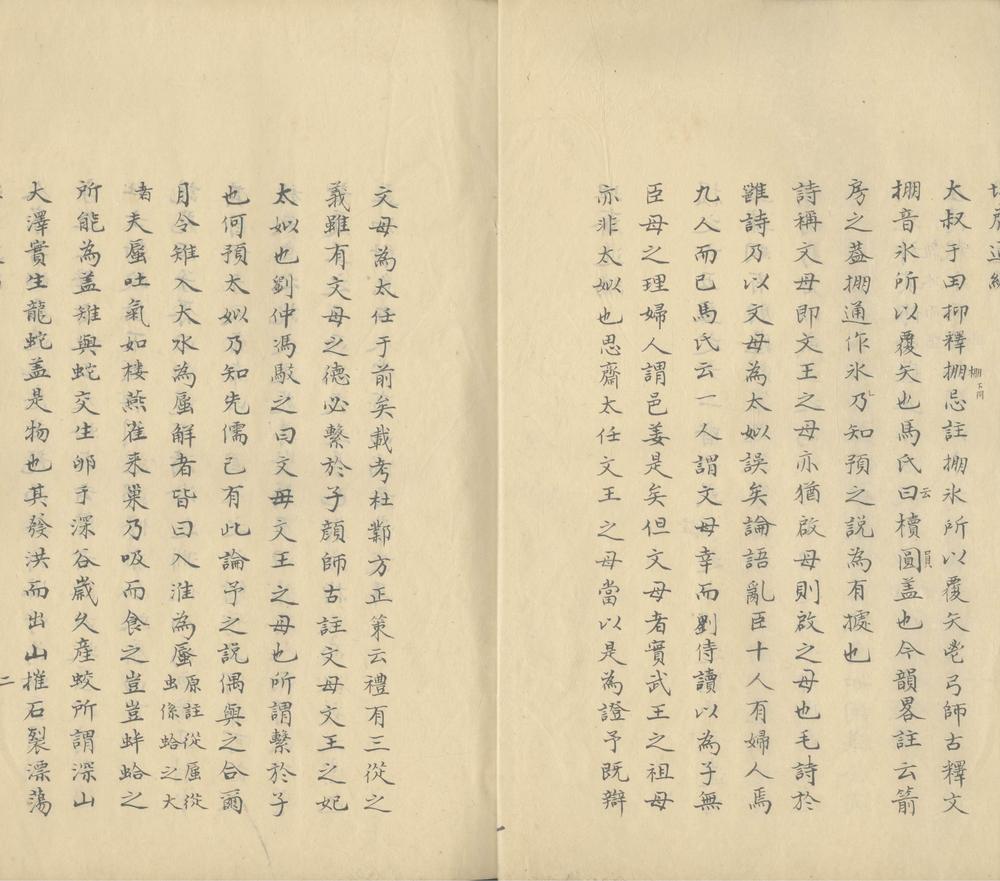 大叔于田抑釋掤忌註掤氷所以覆矢鬯弓師古釋文
掤音氷所以覆矢也馬氏曰櫝圓盖也今韻畧註云箭
房之葢掤通作氷乃知預之説為有據也
詩稱文母即文王之母亦猶啟母則啟之母也毛詩於
雝詩乃以文母為太姒誤矣論語亂臣十人有婦人焉
九人而已馬氏云一人謂文母幸而劉侍讀以為子無
臣母之理婦人謂邑姜是矣但文母者實武王之祖母
亦非太姒也思齋太任文王之母當以是為證予既辯
文母為太任于前矣載考杜鄴方正策云禮有三從之
義雖有文母之德必繫於子顔師古註文母文王之妃
太姒也劉仲馮駁之曰文母文王之母也所謂繫於子
也何預太姒乃知先儒已有此論予之説偶與之合爾
月令雉入大水為蜃解者皆曰入淮為蜃
原註從蜃從
虫係蛤之大
者
夫蜃吐氣如樓燕雀来巢乃吸而食之豈豈蚌蛤之
所能為盖雉與蛇交生卵于深谷歲久産蛟所謂深山
大澤實生龍蛇盖是物也其發洪而出山摧石裂漂蕩
二